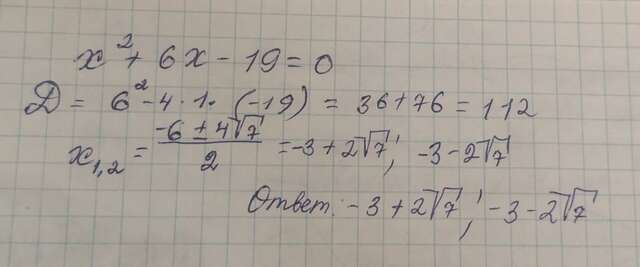 x² + 6x - 19 = 0
D = 6² - 4 · 1 · (-19) = 36 + 76 = 112
x₁,₂ = (-6 ± 4√7)/2 = -3 + 2√7; -3 - 2√7
Ответ: -3 + 2√7; -3 - 2√7